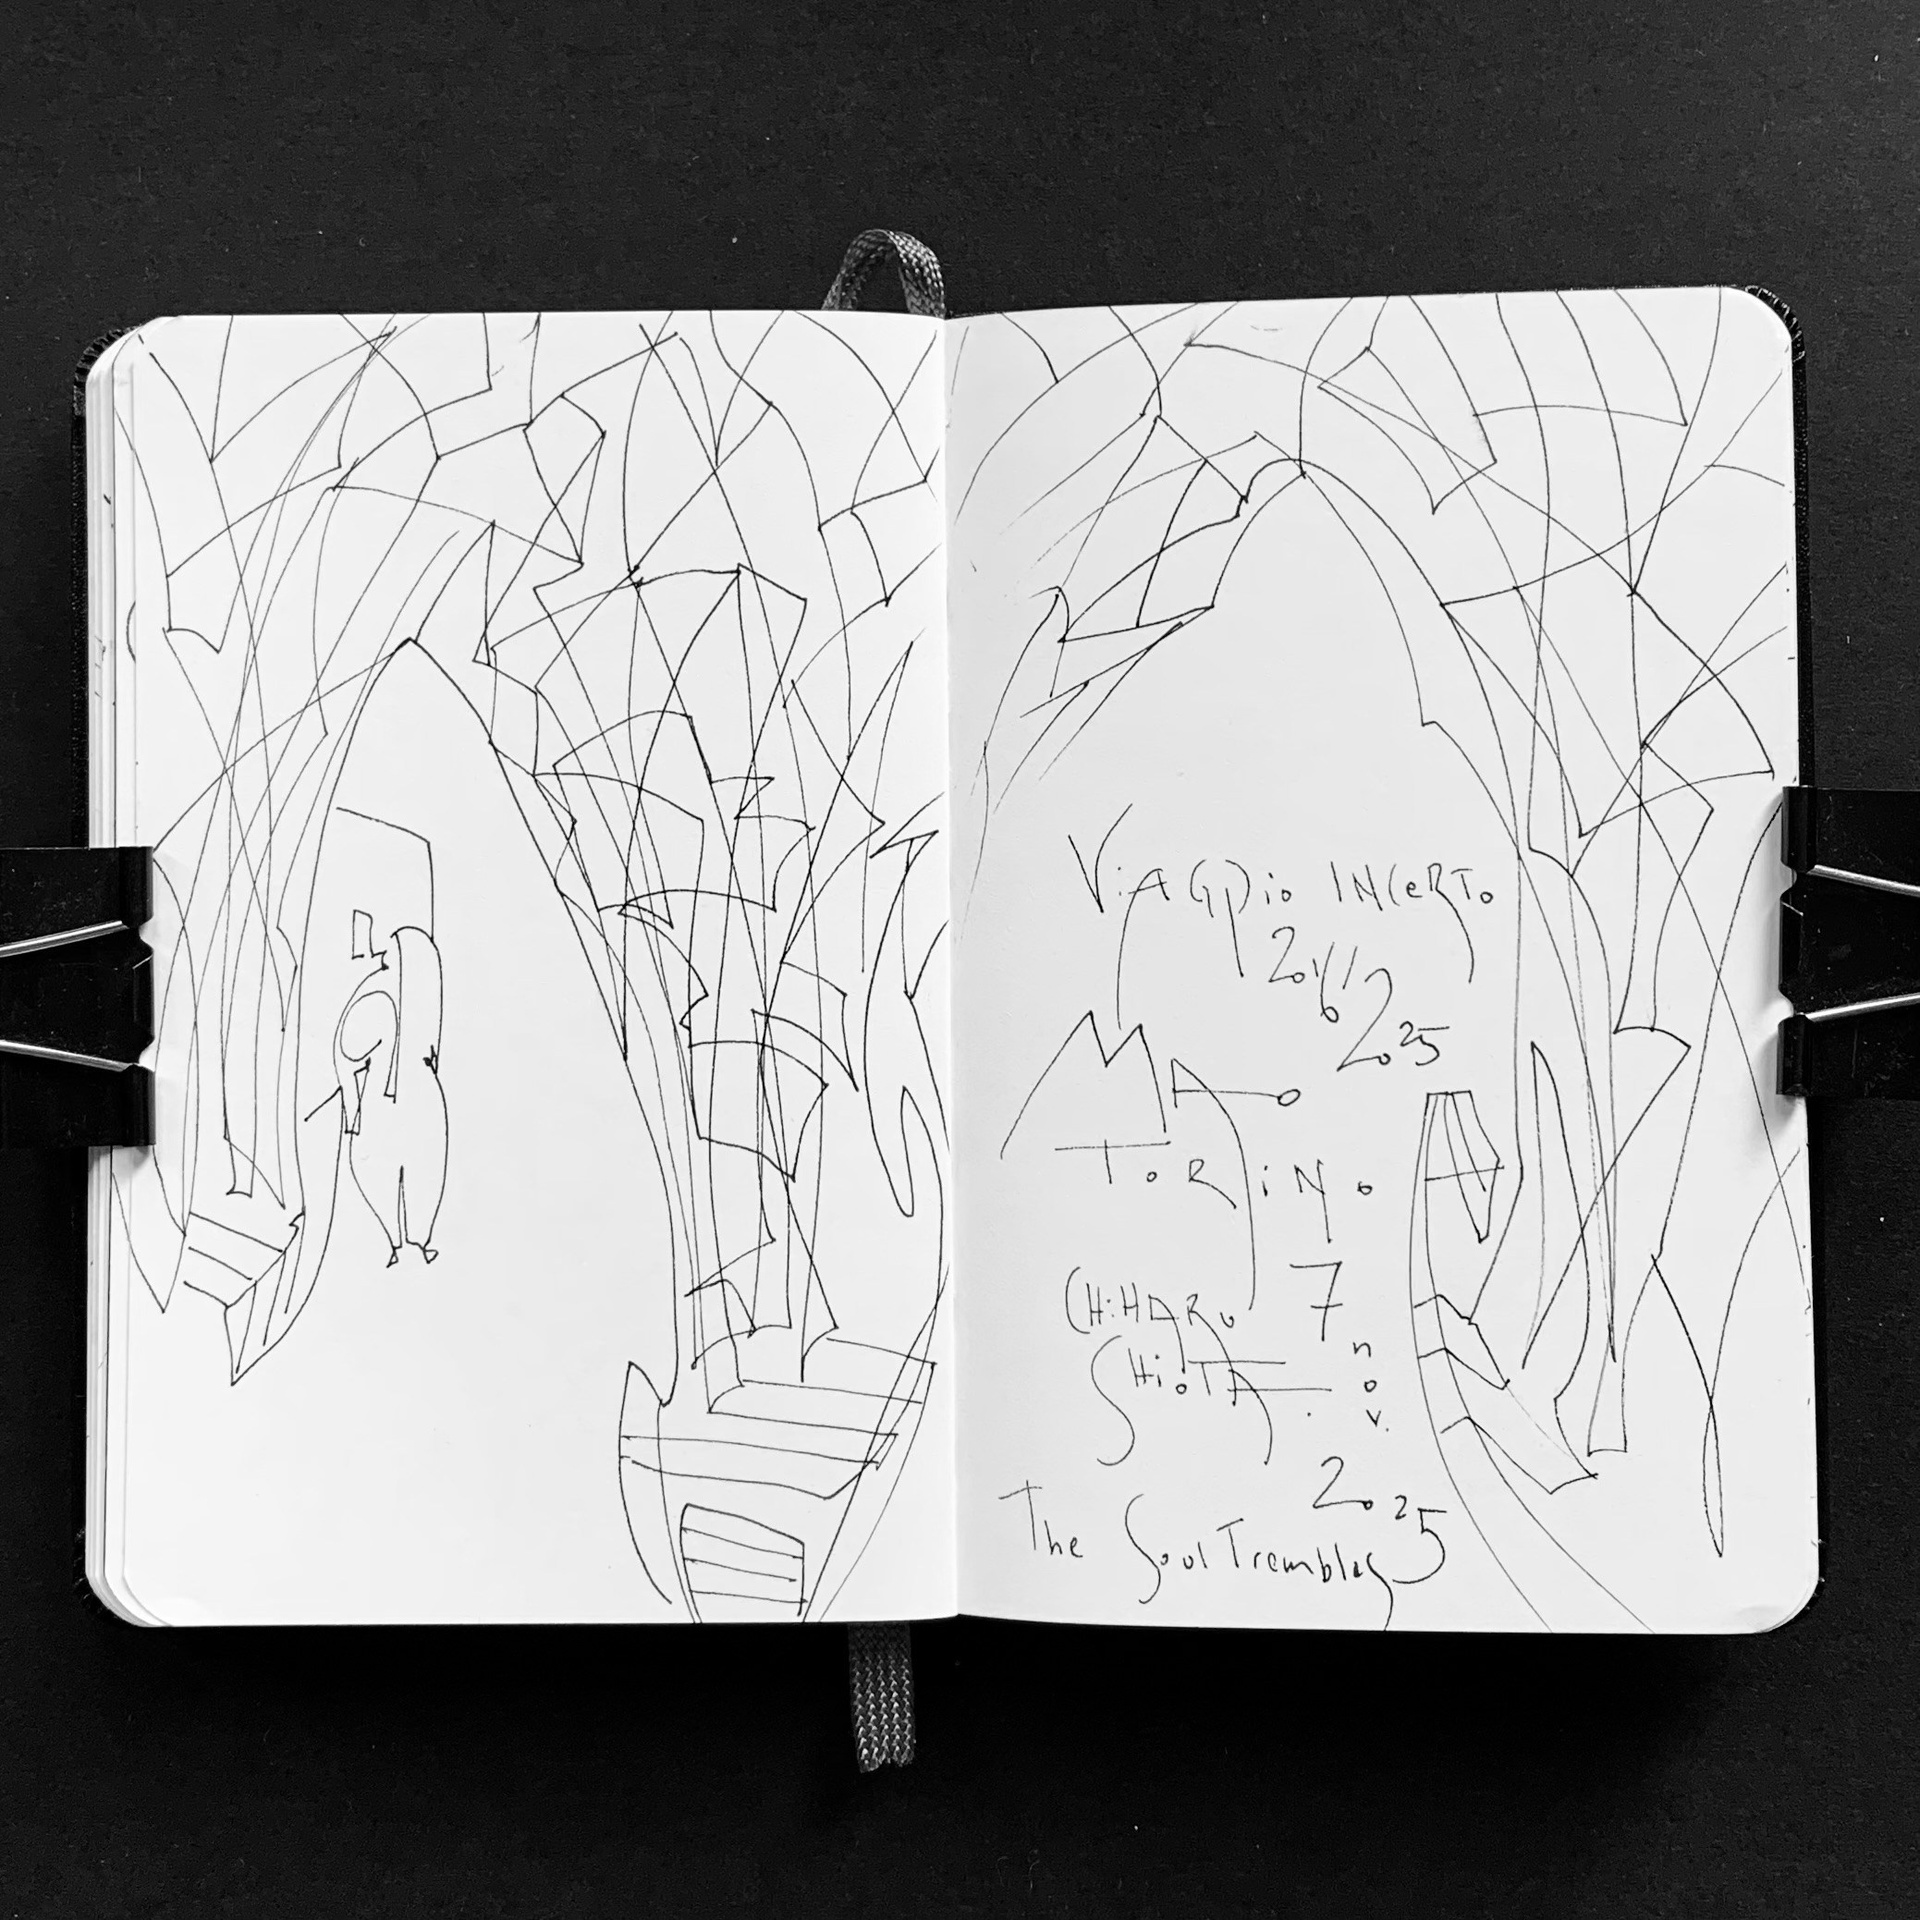 ViAGGio INCeRTo
2016/2025
MAo
ToRiNo
CHiHARU
SHioTA.
7
nov.
2025
The Soul Trembles